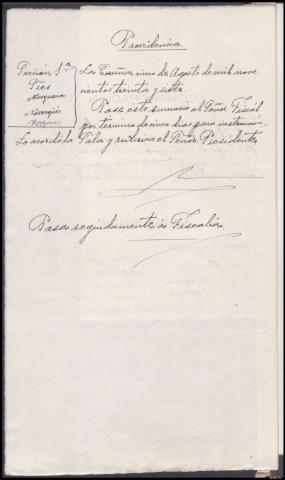 Providencia
Sección 1ª
Pies
Mosquera
La Coruña, cinco de Agosto de mil nove-
cientos treinta y siete.
Pase este sumario al Señor Fiscal
por termino de cinco dias para instrucción.
Lo acordó la Sala y rubrica el Señor Presidente
Pasa seguidamente a Fiscalía